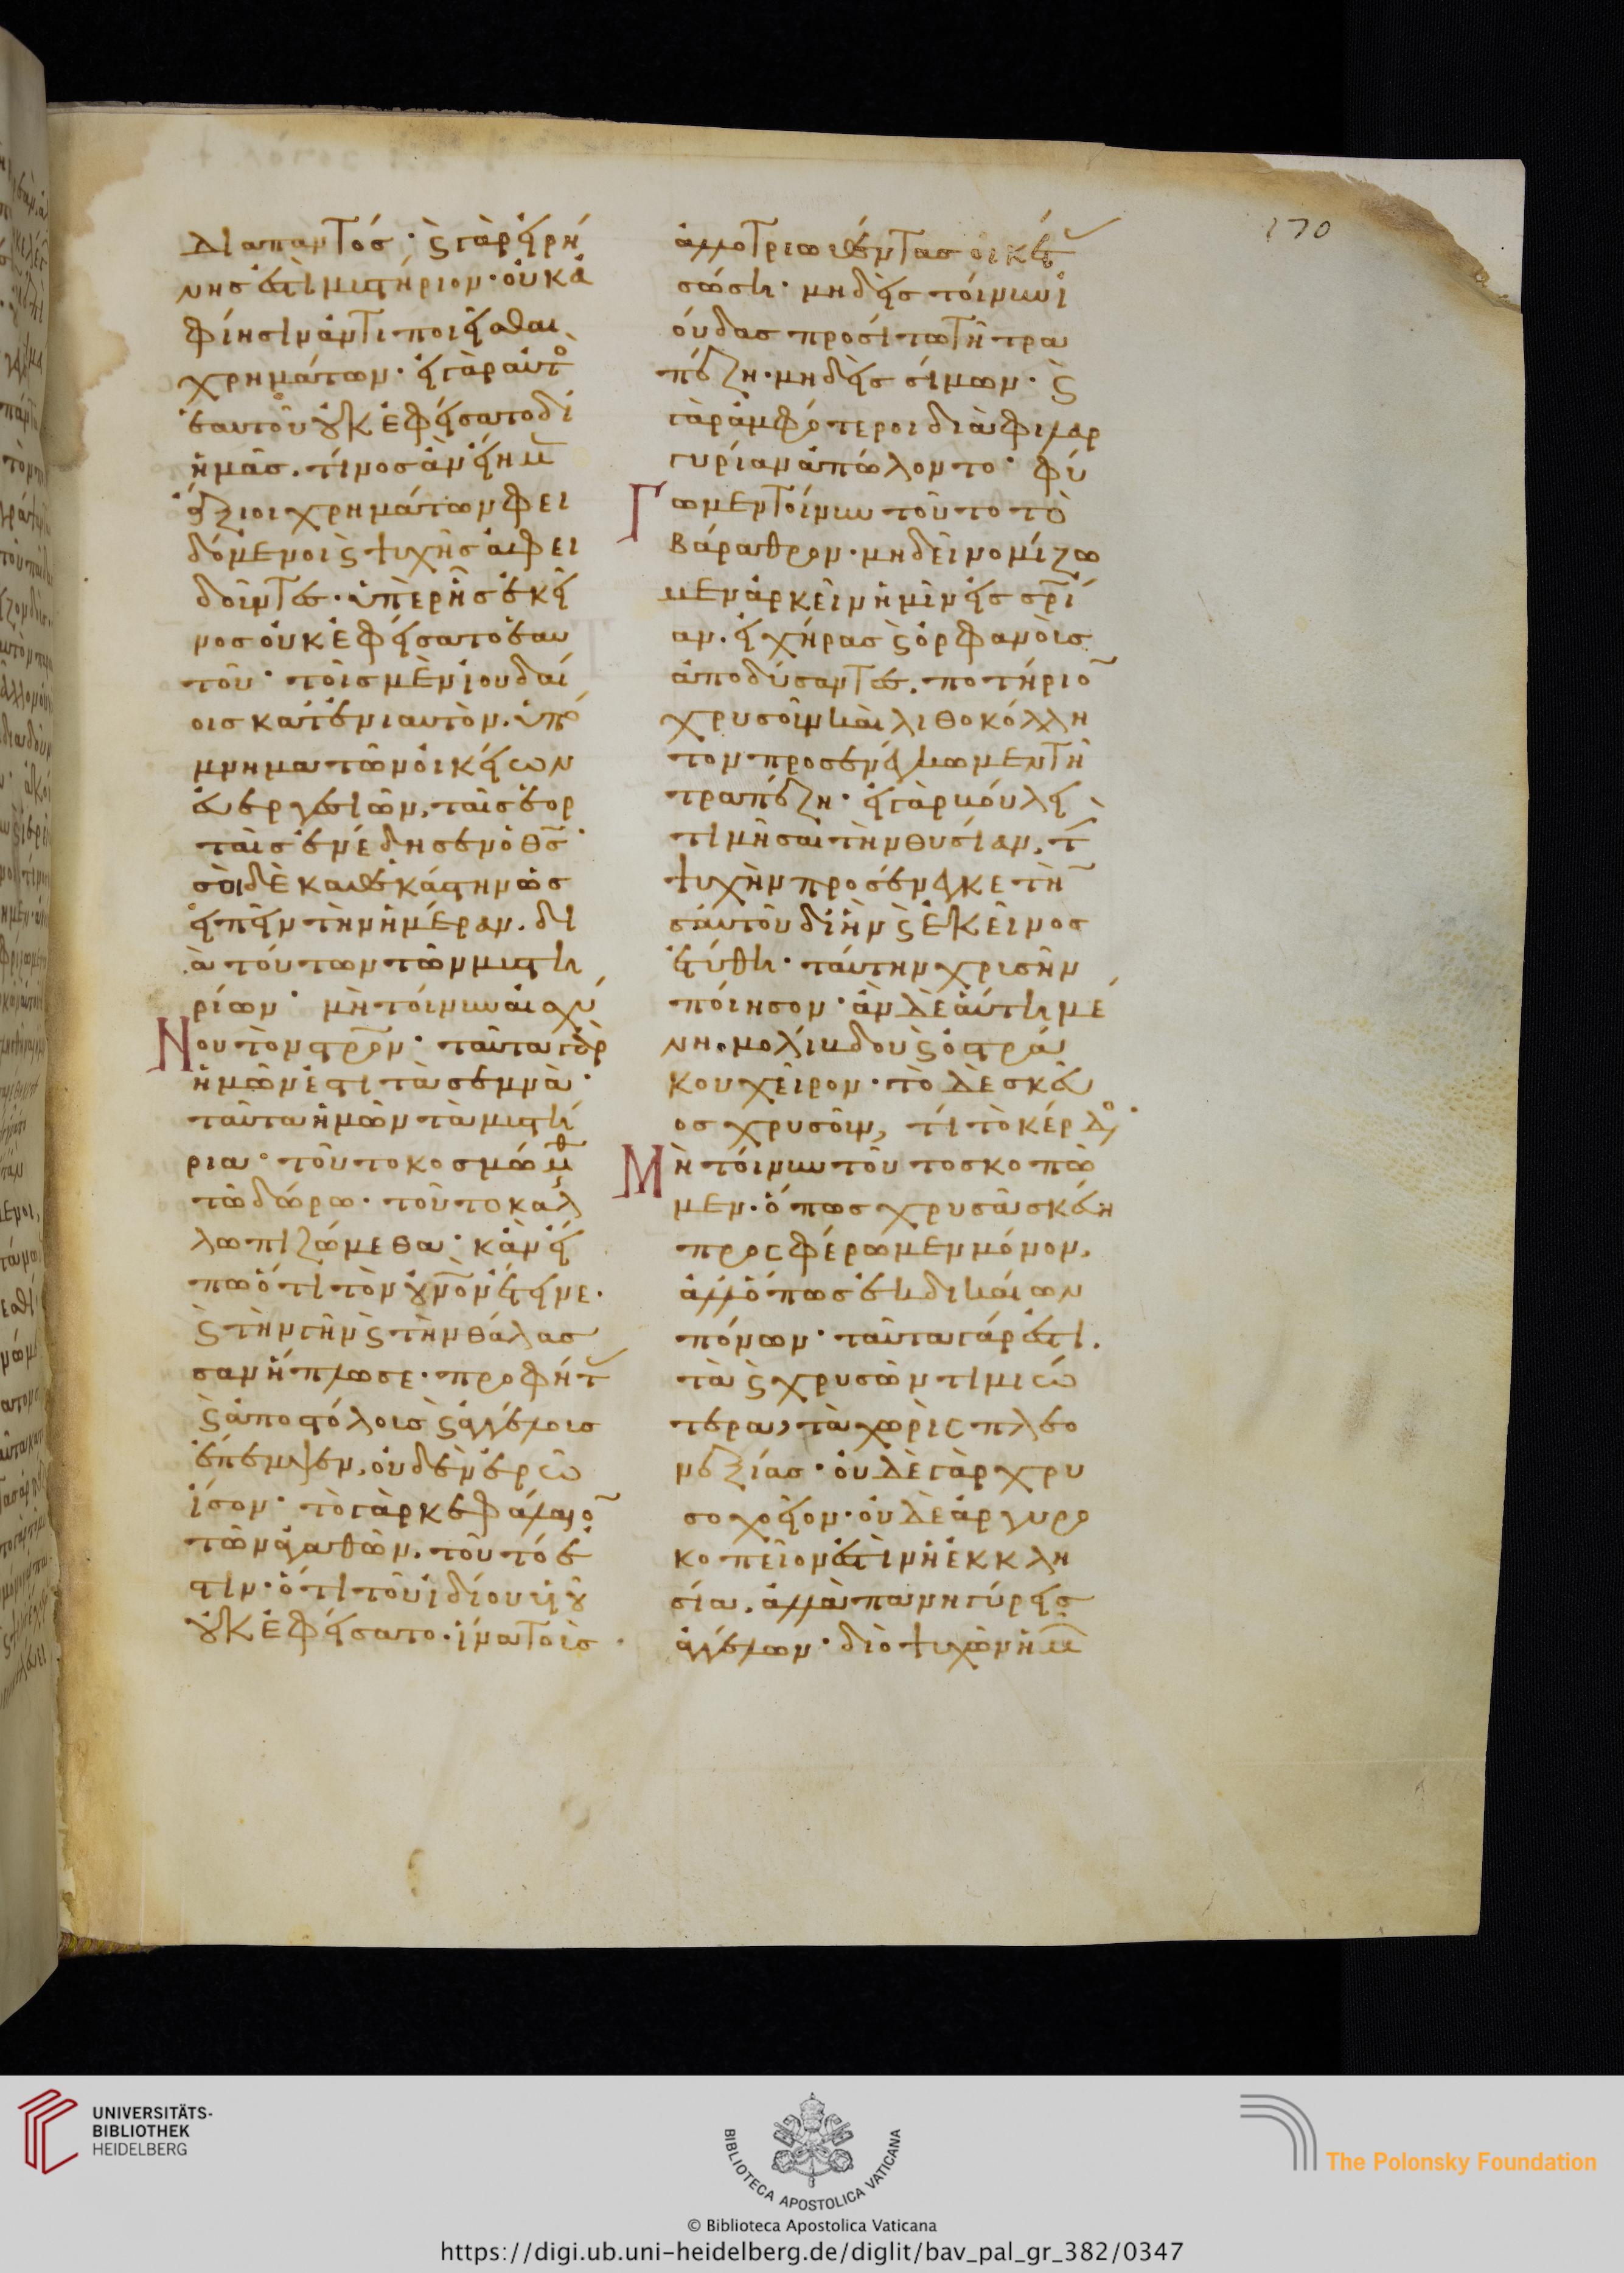 διαπαντός· ϛ γὰρ εἰρή
νης ἐστὶ μυστήριον· οὐκ ἀ
φίησιν ἀντιποιεῖσθαι
χρημάτων. εἰ γὰρ αὐτὸ
ἑαυτοῦ οὐκ ἐφείσατο δι
ἡμᾶς. τίνος ἂν εἴημ̅
ἄξιοι χρημάτων φει
δόμενοι ϛ ψυχῆς ἀφει
δοῦντες. ὑπὲρ ἧς ἐκεῖ
νος οὐκ ἐφείσατο ἑαυ
τοῦ· τοῖς μὲν ἰουδαί
οις κατ ἐνιαυτὸν. ὑπο
μνηματα τῶν οἰκείων
εὐεργεσιῶν, ταῖς ἑορ
ταῖς ἐνέδησεν ὁ θ̅ς̅·
σοὶ δὲ καθ ἑκάστην ὡς
εἰπεῖν τὴν ἡμέραν. δι
ὰ τούτων τῶν μυστη
ρίων· μὴ τοίνυν αἰσχύ
Νου τὸν στρ̅ον· ταῦτα γὰρ
ἡμῶν ἐστι τὰ σεμνὰ·
ταῦτα ἡμῶν τὰ μυστή
ρια· τοῦτο κοσμώμεθ
τῶ δώρω· τοῦτο καλ
λωπιζώμεθα· κἂν εἴ
πω ὅτι τὸν οὐν̅ον ἔτεινε.
ϛ τὴν γῆν ϛ τὴν θάλασ
σαν ἥπλωσε· προφήτ
ϛ ἀποστόλους ϛ ἀγγέλους
ἔπεμψεν, οὐδὲν ἐρῶ
ἴσον· τὸ γὰρ κεφάλαιο̅
τῶν ἀγαθῶν. τοῦτό ἐ
στιν· ὅτι τοῦ ἰδίου υἱοῦ
οὐκ ἐφείσατο. ἵνα τοὺς
170
ἀλλοτριωθέντας οἰκέτ
σώση· μηδεὶς τοίνυν ἰ
ούδας προσίτω τῆ τρα
πέζη· μηδεὶς σίμων· ϛ
γὰρ ἀμφότεροι διὰ φιλαρ
γυρίαν ἀπώλοντο· φύ
Γωμεν τοίνυν τοῦτο τὸ
βάραθρον· μηδεῖ νομίζω
μεν ἀρκεῖν ἡμῖν εἰς σρ̅ί
αν. εἰ χήρας ϛ ὀρφανοὺς
ἀποδύσαντες. ποτήριο̅
χρυσοῦν καὶ λιθοκόλλη
τον προσενέγκωμεν τῆ
τραπέζη· εἰ γὰρ βούλει
τιμῆσαι τὴν θυσίαν, τ̅
ψυχὴν προσένεγκε τὴ̅
σαυτοῦ δι ἣν ϛ ἐκεῖνος
ἐτύθη· ταύτην χρυσῆν
ποίησον· ἂν δὲ αὕτη μέ
νη μολίβδου ϛ ὀστρά
κου χεῖρον· τὸ δὲ σκεῦ
ος χρυσοῦν, τί τὸ κέρδο·
Μὴ τοίνυν τοῦτο σκοπῶ
μεν· ὅπως χρυσᾶ σκεύη
προςφέρωμεν μόνον,
ἀλλ ὅπως ἐκ δικαίων
πόνων· ταῦτα γάρ ἐστι.
τὰ ϛ χρυσῶν τιμιώ
τερα, τὰ χωρὶς πλεο
νεξίας· οὐ δὲ γὰρ χρυ
σοχοεῖον· οὐ δὲ ἀργυρο
κοπεῖον ἐστὶν ἡ ἐκκλη
σία, ἀλλὰ πανήγυρεις
ἀγγέλων· διὸ ψυχῶν ἡμ̅
UNIVERSITÄTS-
BIBLIOTHEK
HEIDELBERG
BIBLIOTECA APOSTOLICA VATICANA
The Polonsky Foundation
© Biblioteca Apostolica Vaticana
https://digi.ub.uni-heidelberg.de/diglit/bav_pal_gr_382/0347